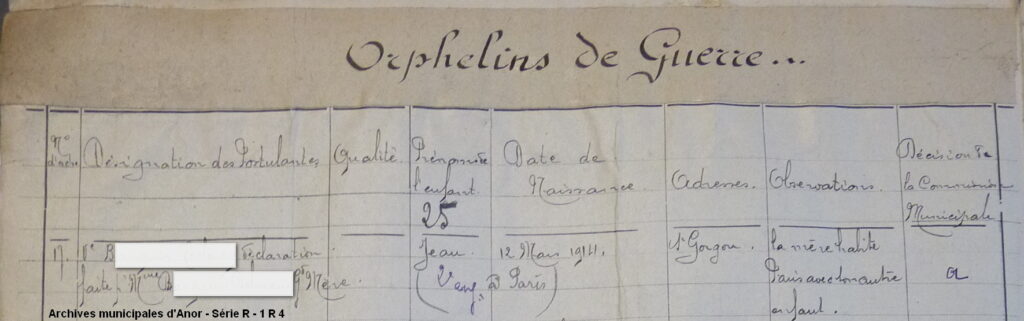 Orphelins de Guerre...
N° d'ordre
Désignation des Postulantes
Qualité.
Prénoms de
l'enfant.
25
Date de
Naissance
Adresses.
Observations.
Décision de
la Commission
Municipale
B
Déclaration
faite p. Mme B
Gd Mère.
Jean.
( à Paris)
12 Mars 1914.
St Gorgon.
la mère habite
Paris avec son autre
enfant.
Archives municipales d'Anor - Série R - 1 R 4